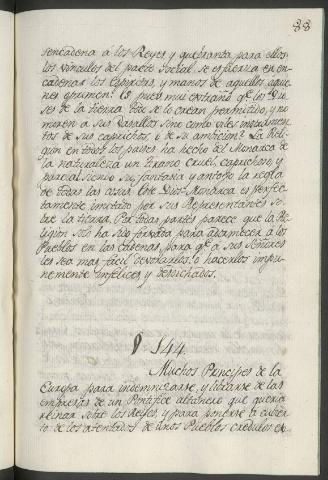 88
sencadena á los Reyes, y quebranta para ellos
los vinculos del pacto Social, se esfuerza en en-
cadenar los Espiritus, y manos de aquellos, aquie-
nes oprimen! Es pues mui extraño qe. los Dio-
ses de la tierra todo se lo crean permitido, y no
miren a sus Vasallos sino como viles instrumen-
tos de sus caprichos, ó de su ambicion? La Reli-
gion en todos los paises ha hecho del Monarca de
la naturaleza un tirano cruel, caprichoso, y
parcial siendo su fantasia y antojo la regla
de todas las cosas. Este Dios-Monarca es perfec-
tamente imitado por sus Representantes so-
bre la tierra. Por todas partes parece que la Re-
ligion solo ha sido forxada para adormecer a los
Pueblos en las cadenas, para qe. á sus Señores
les sea mas facil devorarlos, ó hacerlos impu-
nemente infelices y desdichados.
§. 144.
Muchos Principes de la
Europa para indemnizarse, y librarse de las
empresas de un Pontifice altanero que queria
reinar sobre los Reyes, y para ponerse a cubier-
to de los atentados de unos Pueblos credulos es-